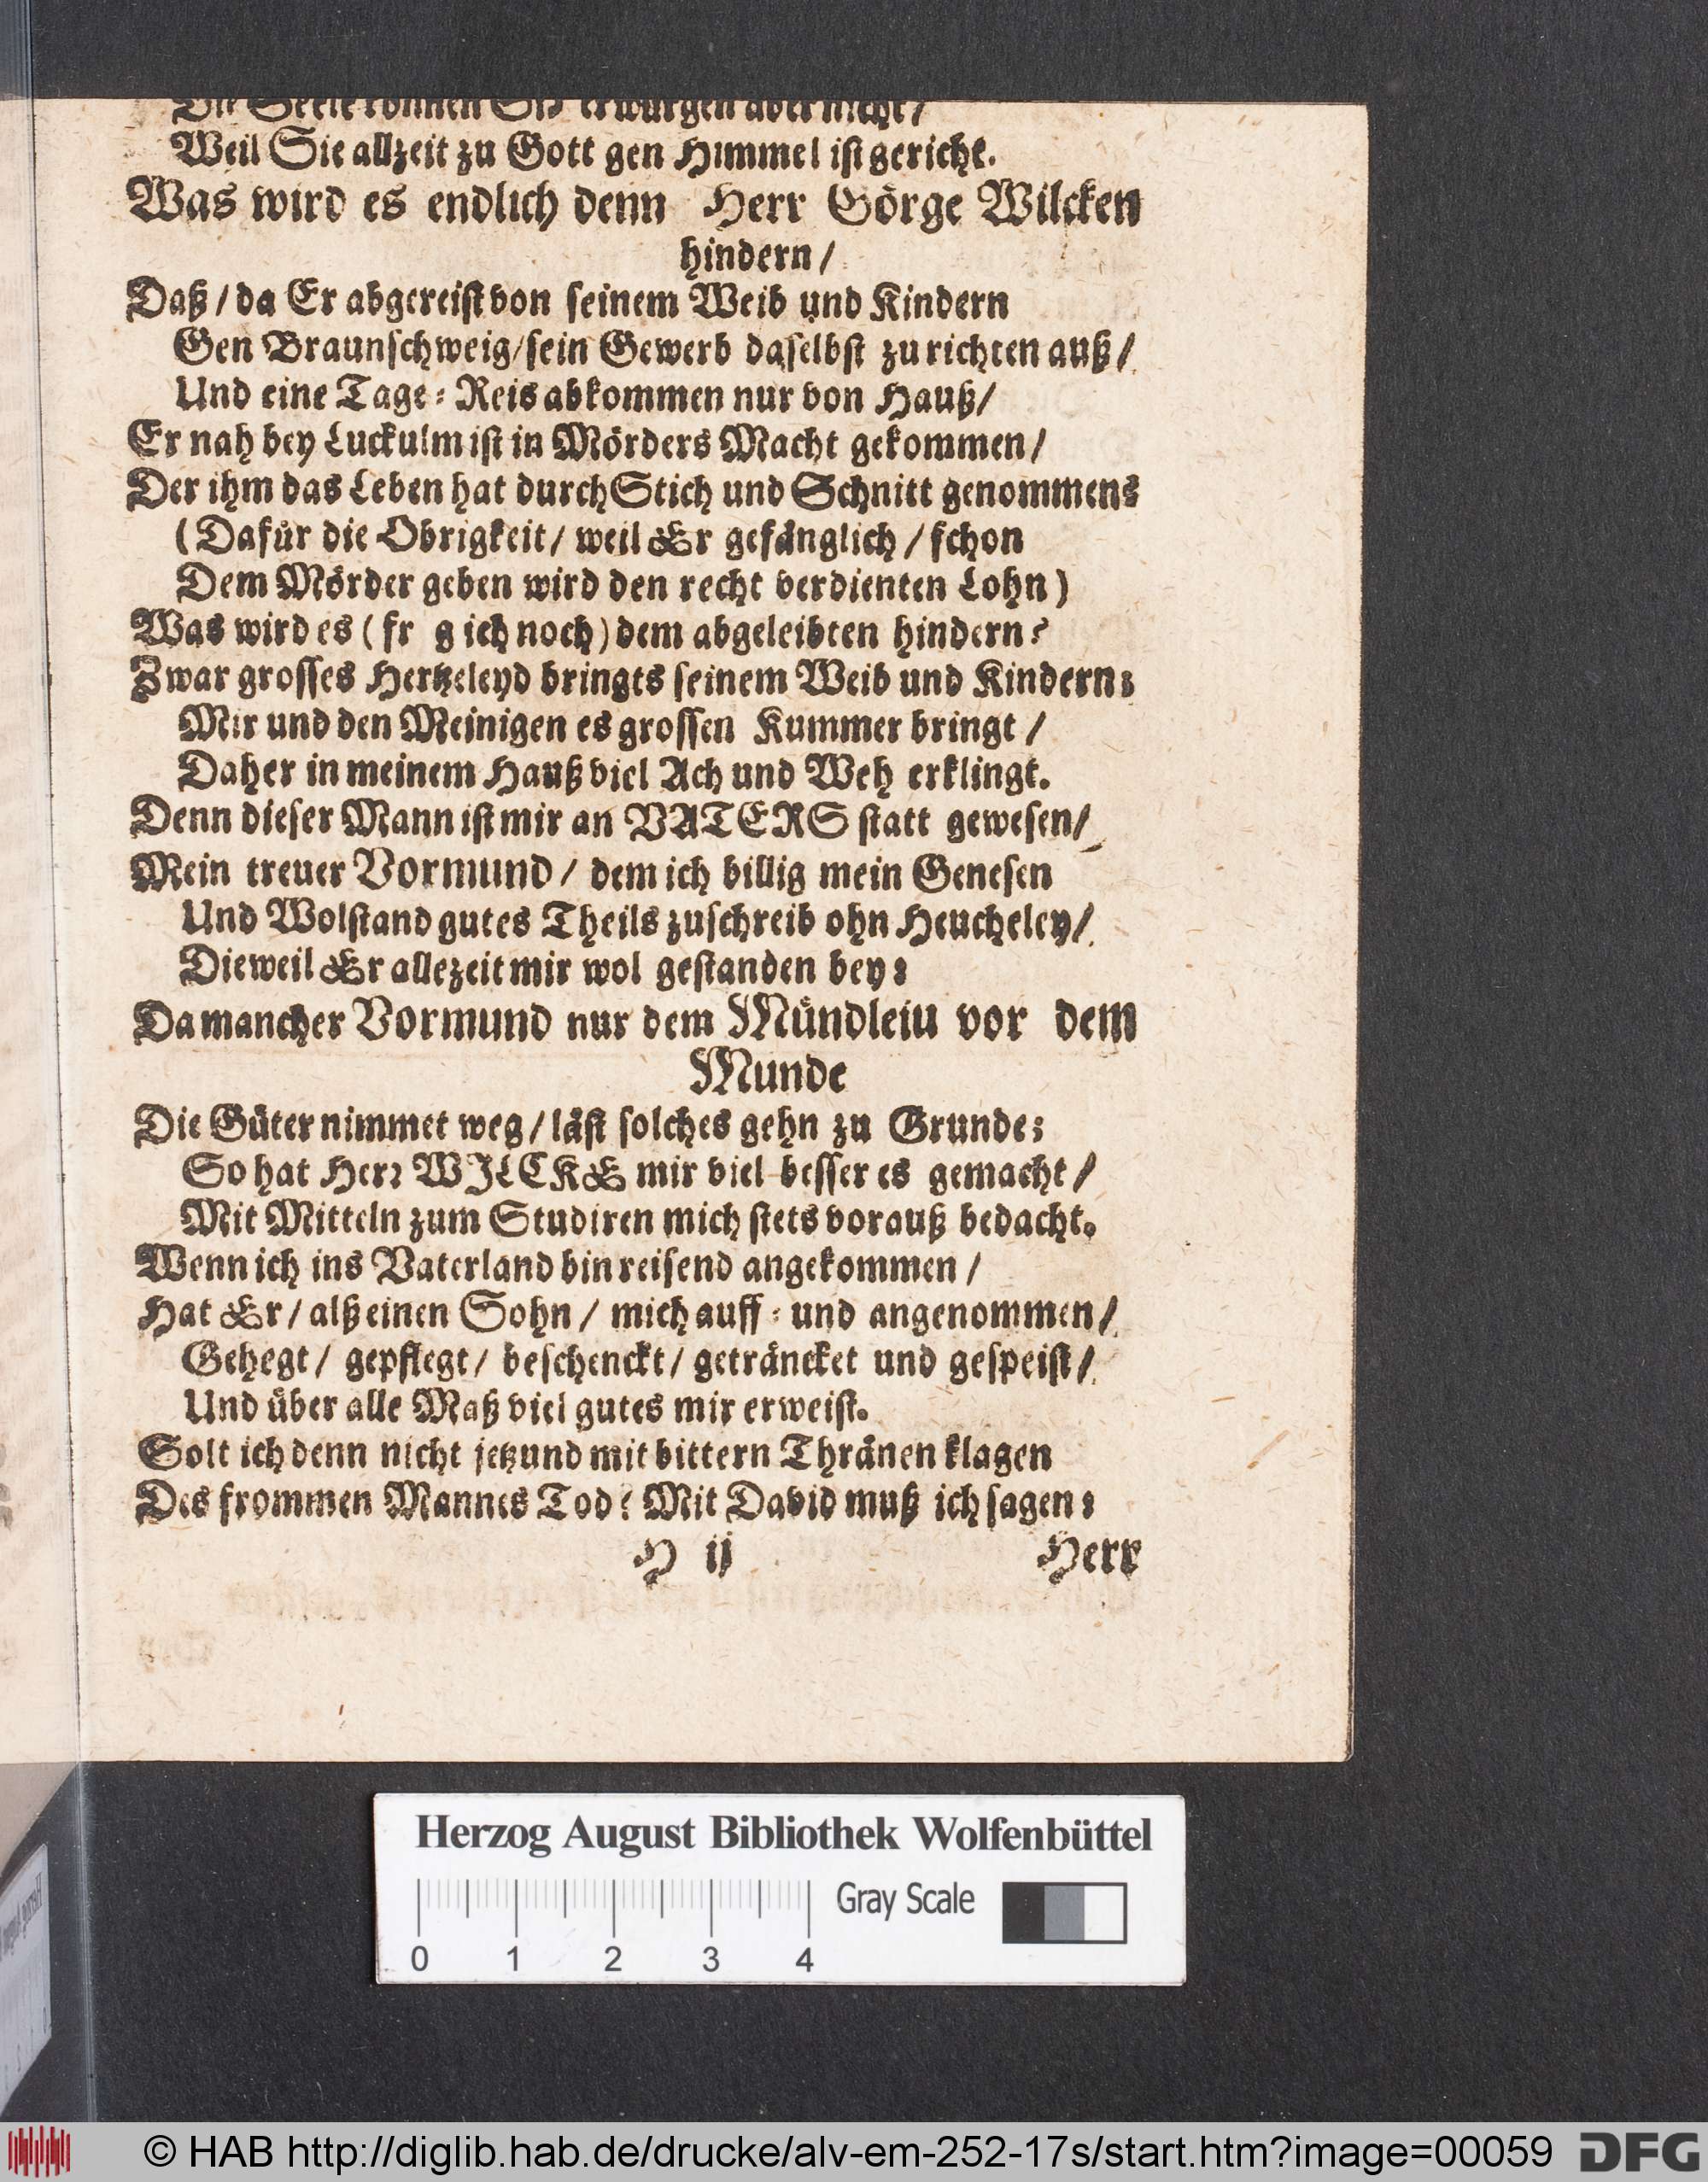 Die Seele können Sie erwürgen aber nicht /
Weil Sie allzeit zu Gott gen Himmel ist gericht.
Was wird es endlich denn Herr Görge Wilcken
hindern /
Daß / da Er abgereist von seinem Weib und Kindern
Gen Braunschweig / sein Gewerb daselbst zu richten auß /
Und eine Tage-Reis abkommen nur von Hauß /
Er nah bey Luckulm ist in Mörders Macht gekommen /
Der ihm das Leben hat durch Stich und Schnitt genommen:
(Dafür die Obrigkeit / weil Er gefänglich / schon
Dem Mörder geben wird den recht verdienten Lohn)
Was wird es (fr g ich noch) dem abgeleibten hindern?
Zwar grosses Hertzeleyd bringts seinem Weib und Kindern:
Mir und den Meinigen es grossen Kummer bringt /
Daher in meinem Hauß viel Ach und Weh erklingt.
Denn dieser Mann ist mir an VATERS statt gewesen /
Mein treuer Vormund / dem ich billig mein Genesen
Und Wolstand gutes Theils zuschreib ohn Heucheley /
Dieweil Er allezeit mir wol gestanden bey:
Da mancher Vormund nur dem Mündleiu vor dem
Munde
Die Güter nimmet weg / läst solches gehn zu Grunde;
So hat Herr WILCKE mir viel besser es gemacht /
Mit Mitteln zum Studiren mich stets vorauß bedacht.
Wenn ich ins Vaterland bin reisend angekommen /
Hat Er / alß einen Sohn / mich auff- und angenommen /
Gehegt / gepflegt / beschenckt / geträncket und gespeist /
Und über alle Maß viel gutes mir erweist.
Solt ich denn nicht jetzund mit bittern Thränen klagen
Des frommen Mannes Tod? Mit David muß ich sagen:
H ij Herr
Herzog August Bibliothek Wolfenbüttel
Gray Scale
0 1 2 3 4
© HAB http://diglib.hab.de/drucke/alv-em-252-17s/start.htm?image=00059 DFG